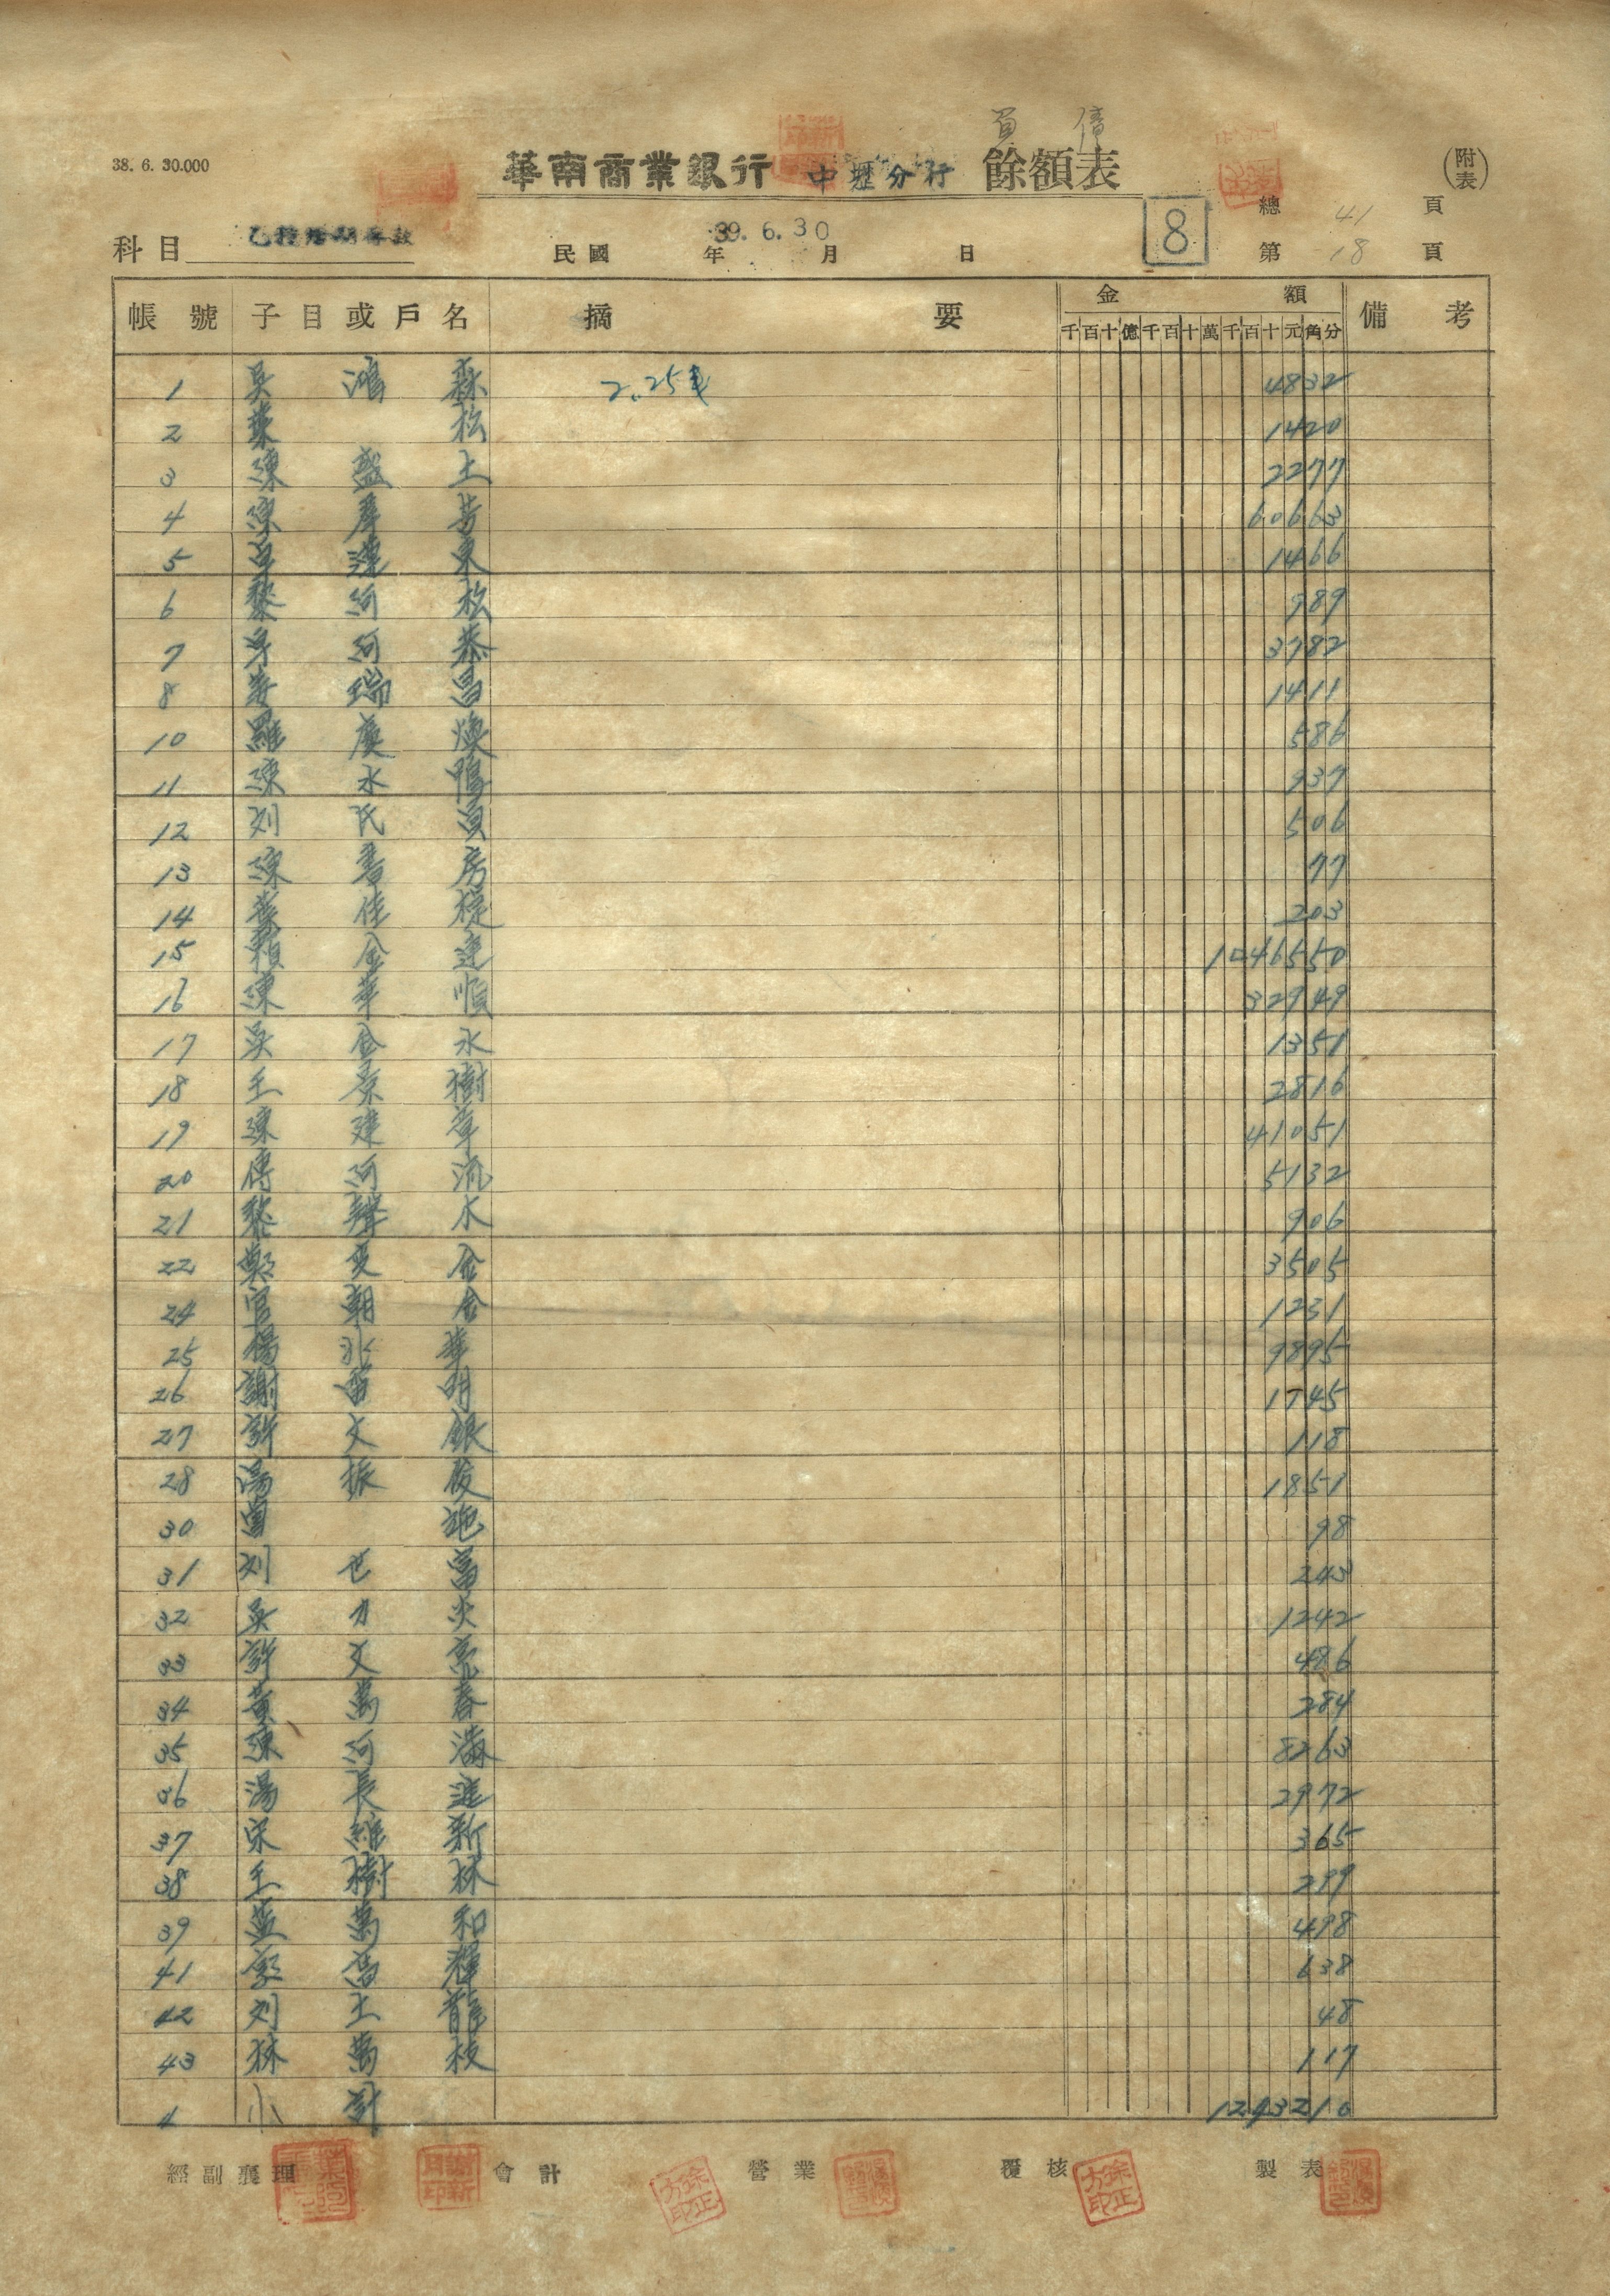 38. 6. 30.000
負債
華南商業銀行 中壢分行 餘額表
(附表)
科目 乙種活期存款
民國 39. 6. 30 年 月 日
8
總 41 頁
第 18 頁
帳號 子目或戶名 摘要 金額 備考
千百十億千百十萬千百十元角分
1 吳鴻森 2.25 4832
2 葉松 1420
3 陳盛土 2277
4 陳群芳 60663
5 1466
6 黎阿松 989
7 阿恭 3782
8 姜瑞昌 1411
10 羅慶煥 586
11 陳水鴨 937
12 刘氏 506
13 陳書房 77
14 葉佳 203
15 賴金達 1046550
16 陳華順 32949
17 吳金水 1351
18 王景樹 2816
19 陳建章 41051
20 傅阿流 5132
21 黎水 906
22 鄭金 3505
24 官朝金 1231
25 楊華 9895
26 謝明 1745
27 許文銀 118
28 湯振俊 1851
30 98
31 刘世富 243
32 吳力火 1242
33 許文亮 486
34 黃萬春 284
35 陳阿滿 8263
36 湯長進 2972
37 宋維新 365
38 王樹林 299
39 藍萬和 498
41 郭富輝 638
42 刘土龍 48
43 林萬枝 117
小計 1243210
經副襄理 會計 營業 覆核 製表